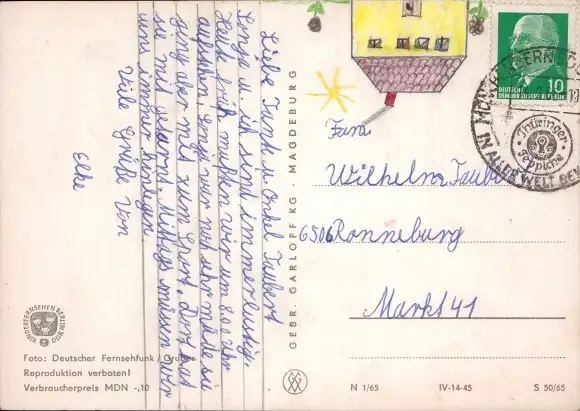 Liebe Tante u. Onkel Taubert
Sonja u. ich sind immer lustig.
Früh müssen wir um 8.00 Uhr
aufstehen. Sonja war noch sehr müde, sie
ging aber mit zum Sport. Dort hat
sie mit geturnt. Mittags müssen wir
uns immer hinlegen.
Viele Grüße von
Elke
Fam.
Wilhelm Taubert
6506 Ronneburg
Markt 41
DEUTSCHE
DEMOKRATISCHE REPUBLIK
10
Thüringer
Teppiche
IN ALLER WELT
GEBR. GARLOFF KG · MAGDEBURG
KINDERFERNSEHEN BERLIN
DDR
Foto: Deutscher Fernsehfunk / Gruber
Reproduktion verboten!
Verbraucherpreis MDN -,10
N 1/65
IV-14-45
S 50/65